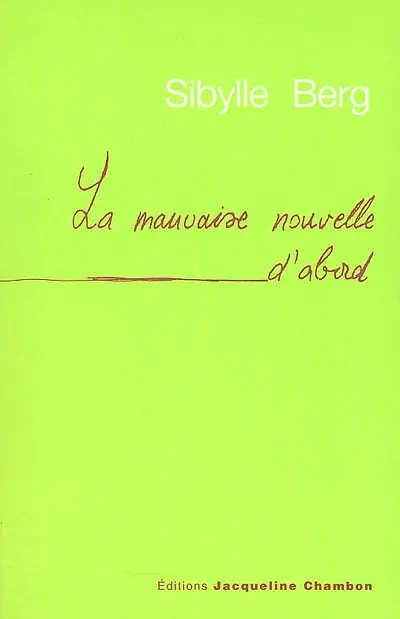 Sibylle Berg
La mauvaise nouvelle
d'abord
Éditions Jacqueline Chambon